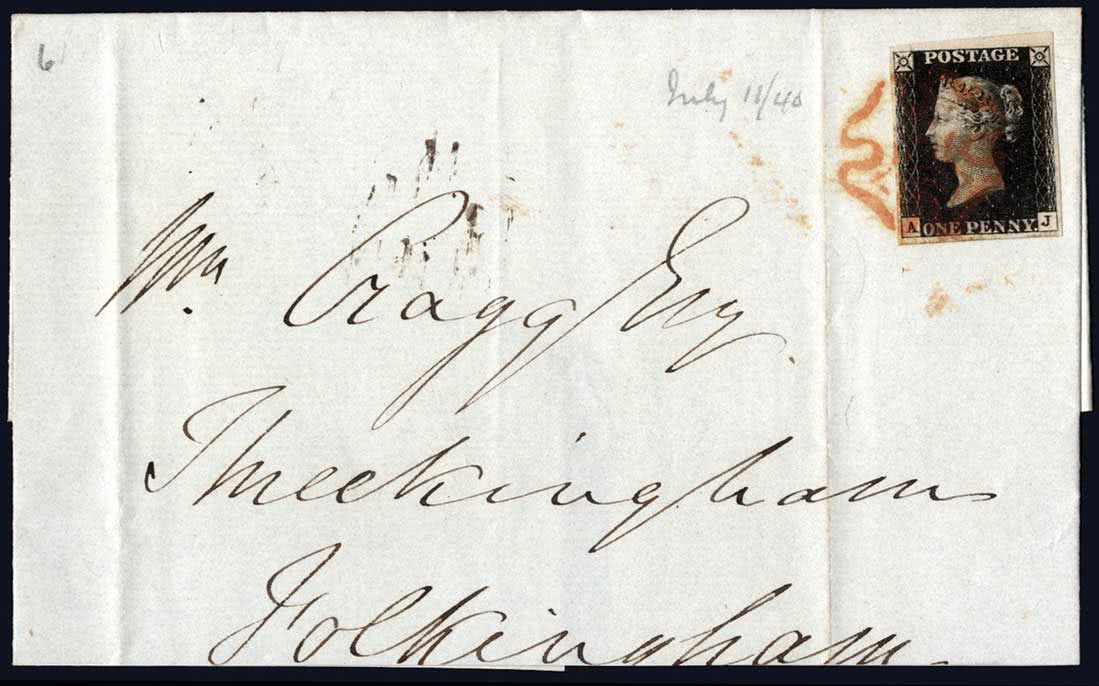 6
July 11/40
POSTAGE
A ONE PENNY J
Wm Cragg Esq.
Threekingham
Folkingham